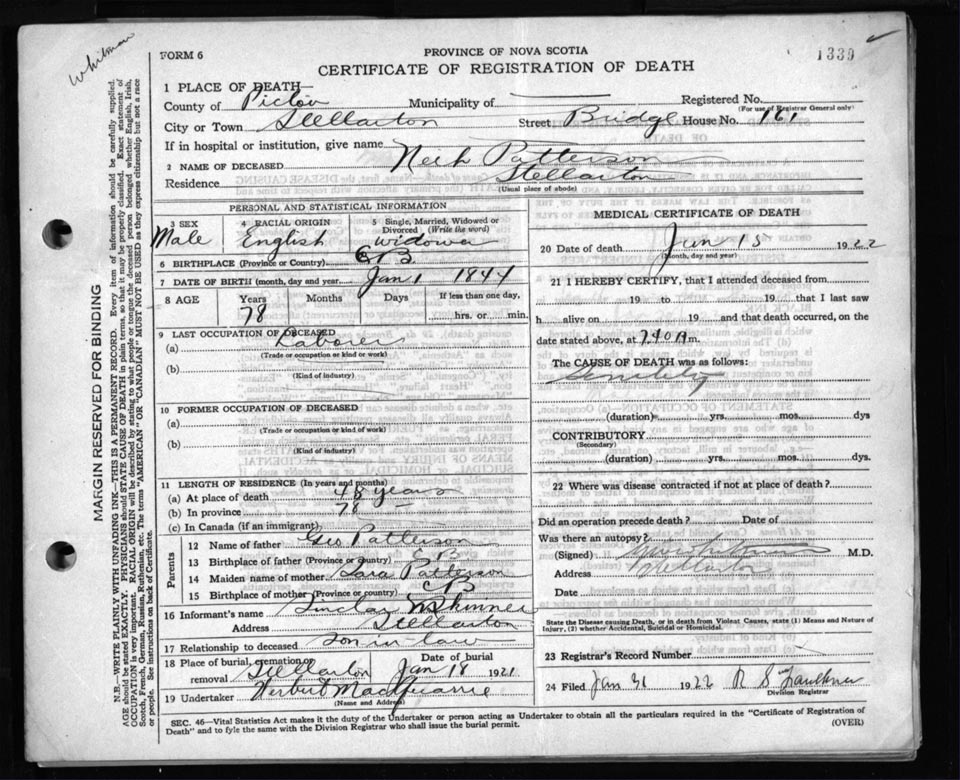 Whitman
FORM 6
PROVINCE OF NOVA SCOTIA
1339
CERTIFICATE OF REGISTRATION OF DEATH
1 PLACE OF DEATH—
County of Pictou Municipality of Registered No.
(For use of Registrar General only)
City or Town Stellarton Street Bridge House No. 161
If in hospital or institution, give name
2 NAME OF DECEASED Patterson
Residence Stellarton
(Usual place of abode)
PERSONAL AND STATISTICAL INFORMATION
3 SEX 4 RACIAL ORIGIN 5 Single, Married, Widowed or Divorced (Write the word)
Male English widower
6 BIRTHPLACE (Province or Country) C B
7 DATE OF BIRTH (month, day and year) Jan 1 1844
8 AGE Years Months Days If less than one day,
78 hrs. or min.
9 LAST OCCUPATION OF DECEASED
(a) Laborer
(Trade or occupation or kind or work)
(b)
(Kind of industry)
10 FORMER OCCUPATION OF DECEASED
(a)
(Trade or occupation or kind of work)
(b)
(Kind of industry)
11 LENGTH OF RESIDENCE (In years and months)
(a) At place of death 48 years
(b) In province 78
(c) In Canada (if an immigrant)
Parents
12 Name of father Geo Patterson
13 Birthplace of father (Province or country) C B
14 Maiden name of mother Sara Patterson
15 Birthplace of mother (Province or country) C B
16 Informant's name Sinclair
Address Stellarton
17 Relationship to deceased son in law
18 Place of burial, cremation or removal Stellarton Date of burial Jan 18 1921
19 Undertaker Herbert MacQuarrie
(Name and Address)
MEDICAL CERTIFICATE OF DEATH
20 Date of death Jan 15 1922
(Month, day and year)
21 I HEREBY CERTIFY, that I attended deceased from
19 to 19 that I last saw
h alive on 19 and that death occurred, on
date stated above, at 7.40 A m.
The CAUSE OF DEATH was as follows:
Senility
(duration) yrs. mos. dys
CONTRIBUTORY
(Secondary)
(duration) yrs. mos. dys
22 Where was disease contracted if not at place of death?
Did an operation precede death? Date of
Was there an autopsy?
(Signed) M.D.
Address Stellarton
Date
State the Disease causing Death, or in death from Violent Causes, state (1) Means and Nature of Injury, (2) whether Accidental, Suicidal or Homicidal.
23 Registrar's Record Number
24 Filed Jan 31 1922 R S Faulkner
Division Registrar
SEC. 46—Vital Statistics Act makes it the duty of the Undertaker or person acting as Undertaker to obtain all the particulars required in the "Certificate of Registration of
Death" and to fyle the same with the Division Registrar who shall issue the burial permit. (OVER)
MARGIN RESERVED FOR BINDING
N.B.—WRITE PLAINLY WITH UNFADING INK—THIS IS A PERMANENT RECORD. Every item of information should be carefully supplied.
AGE should be stated EXACTLY. PHYSICIANS should STATE CAUSE OF DEATH in plain terms, so that it may be properly classified. Exact statement of
OCCUPATION is very important. RACIAL ORIGIN will be described by stating to what people or tongue the deceased person belonged whether English, Irish,
Scotch, French, German, Russian, Ruthenian, etc. The terms "AMERICAN" OR "CANADIAN" MUST NOT BE USED as they express citizenship but not a race
or people. See instructions on back of Certificate.